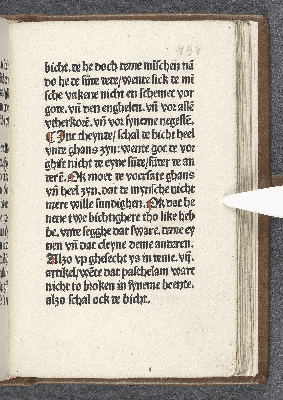 bicht. te he doch teme mīschen nā
do he te sūte tete/wente sick te mī
sche vakene nicht en schemet vor
gote. vñ den enghelen. vñ vor allē
vtherkorē. vñ vor syneme negestē.
¶ Int theynte/schal te bicht heel
vnte ghans zyn: wente got te vor
ghift nicht te eyne sūte/sūter te an
terē. Ok moet te vorsate ghans
vñ heel zyn, dat te mynsche nicht
mere wille sundighen. Ok dat he
nene twe bichtighere tho like heb
be. vnte segghe dat sware. teme ey
nen vñ dat cleyne deme anteren.
Alzo vp ghesecht ys in teme. vij.
artikel/wēte dat paschelam wart
nicht to broken in syneme beente.
alzo schal ock te bicht.